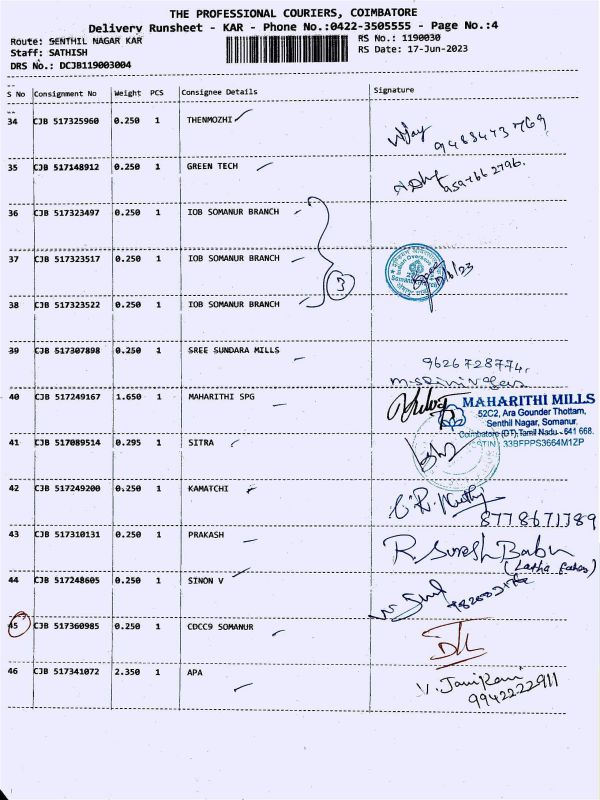 THE PROFESSIONAL COURIERS, COIMBATORE
Delivery Runsheet - KAR - Phone No.:0422-3505555 - Page No.:4
Route: SENTHIL NAGAR KAR
RS No.: 1190030
Staff: SATHISH
RS Date: 17-Jun-2023
DRS No.: DCJB119003004
S No Consignment No Weight PCS Consignee Details Signature
34 CJB 517325960 0.250 1 THENMOZHI
9488473769
35 CJB 517148912 0.250 1 GREEN TECH
36 CJB 517323497 0.250 1 IOB SOMANUR BRANCH
37 CJB 517323517 0.250 1 IOB SOMANUR BRANCH
3
38 CJB 517323522 0.250 1 IOB SOMANUR BRANCH
39 CJB 517307898 0.250 1 SREE SUNDARA MILLS
9626728774.
40 CJB 517249167 1.650 1 MAHARITHI SPG
MAHARITHI MILLS
52C2, Ara Gounder Thottam,
Senthil Nagar, Somanur.
Coimbatore (DT), Tamil Nadu - 641 668.
33BFPPS3664M1ZP
41 CJB 517089514 0.295 1 SITRA
42 CJB 517249200 0.250 1 KAMATCHI
8778671789
43 CJB 517310131 0.250 1 PRAKASH
R. Suresh Babu
44 CJB 517248605 0.250 1 SINON V
45 CJB 517360985 0.250 1 CDCC9 SOMANUR
46 CJB 517341072 2.350 1 APA
V. Janikani
9942222911